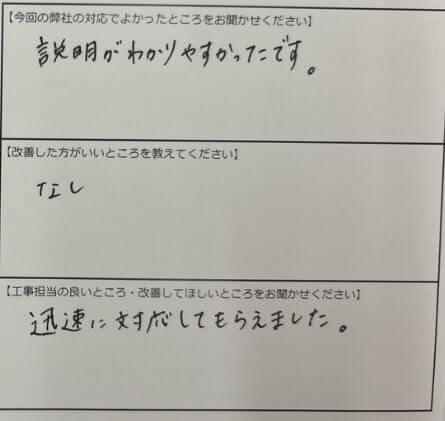 【今回の弊社の対応でよかったところをお聞かせください】
説明がわかりやすかったです。
【改善した方がいいところを教えてください】
なし
【工事担当の良いところ・改善してほしいところをお聞かせください】
迅速に対応してもらえました。